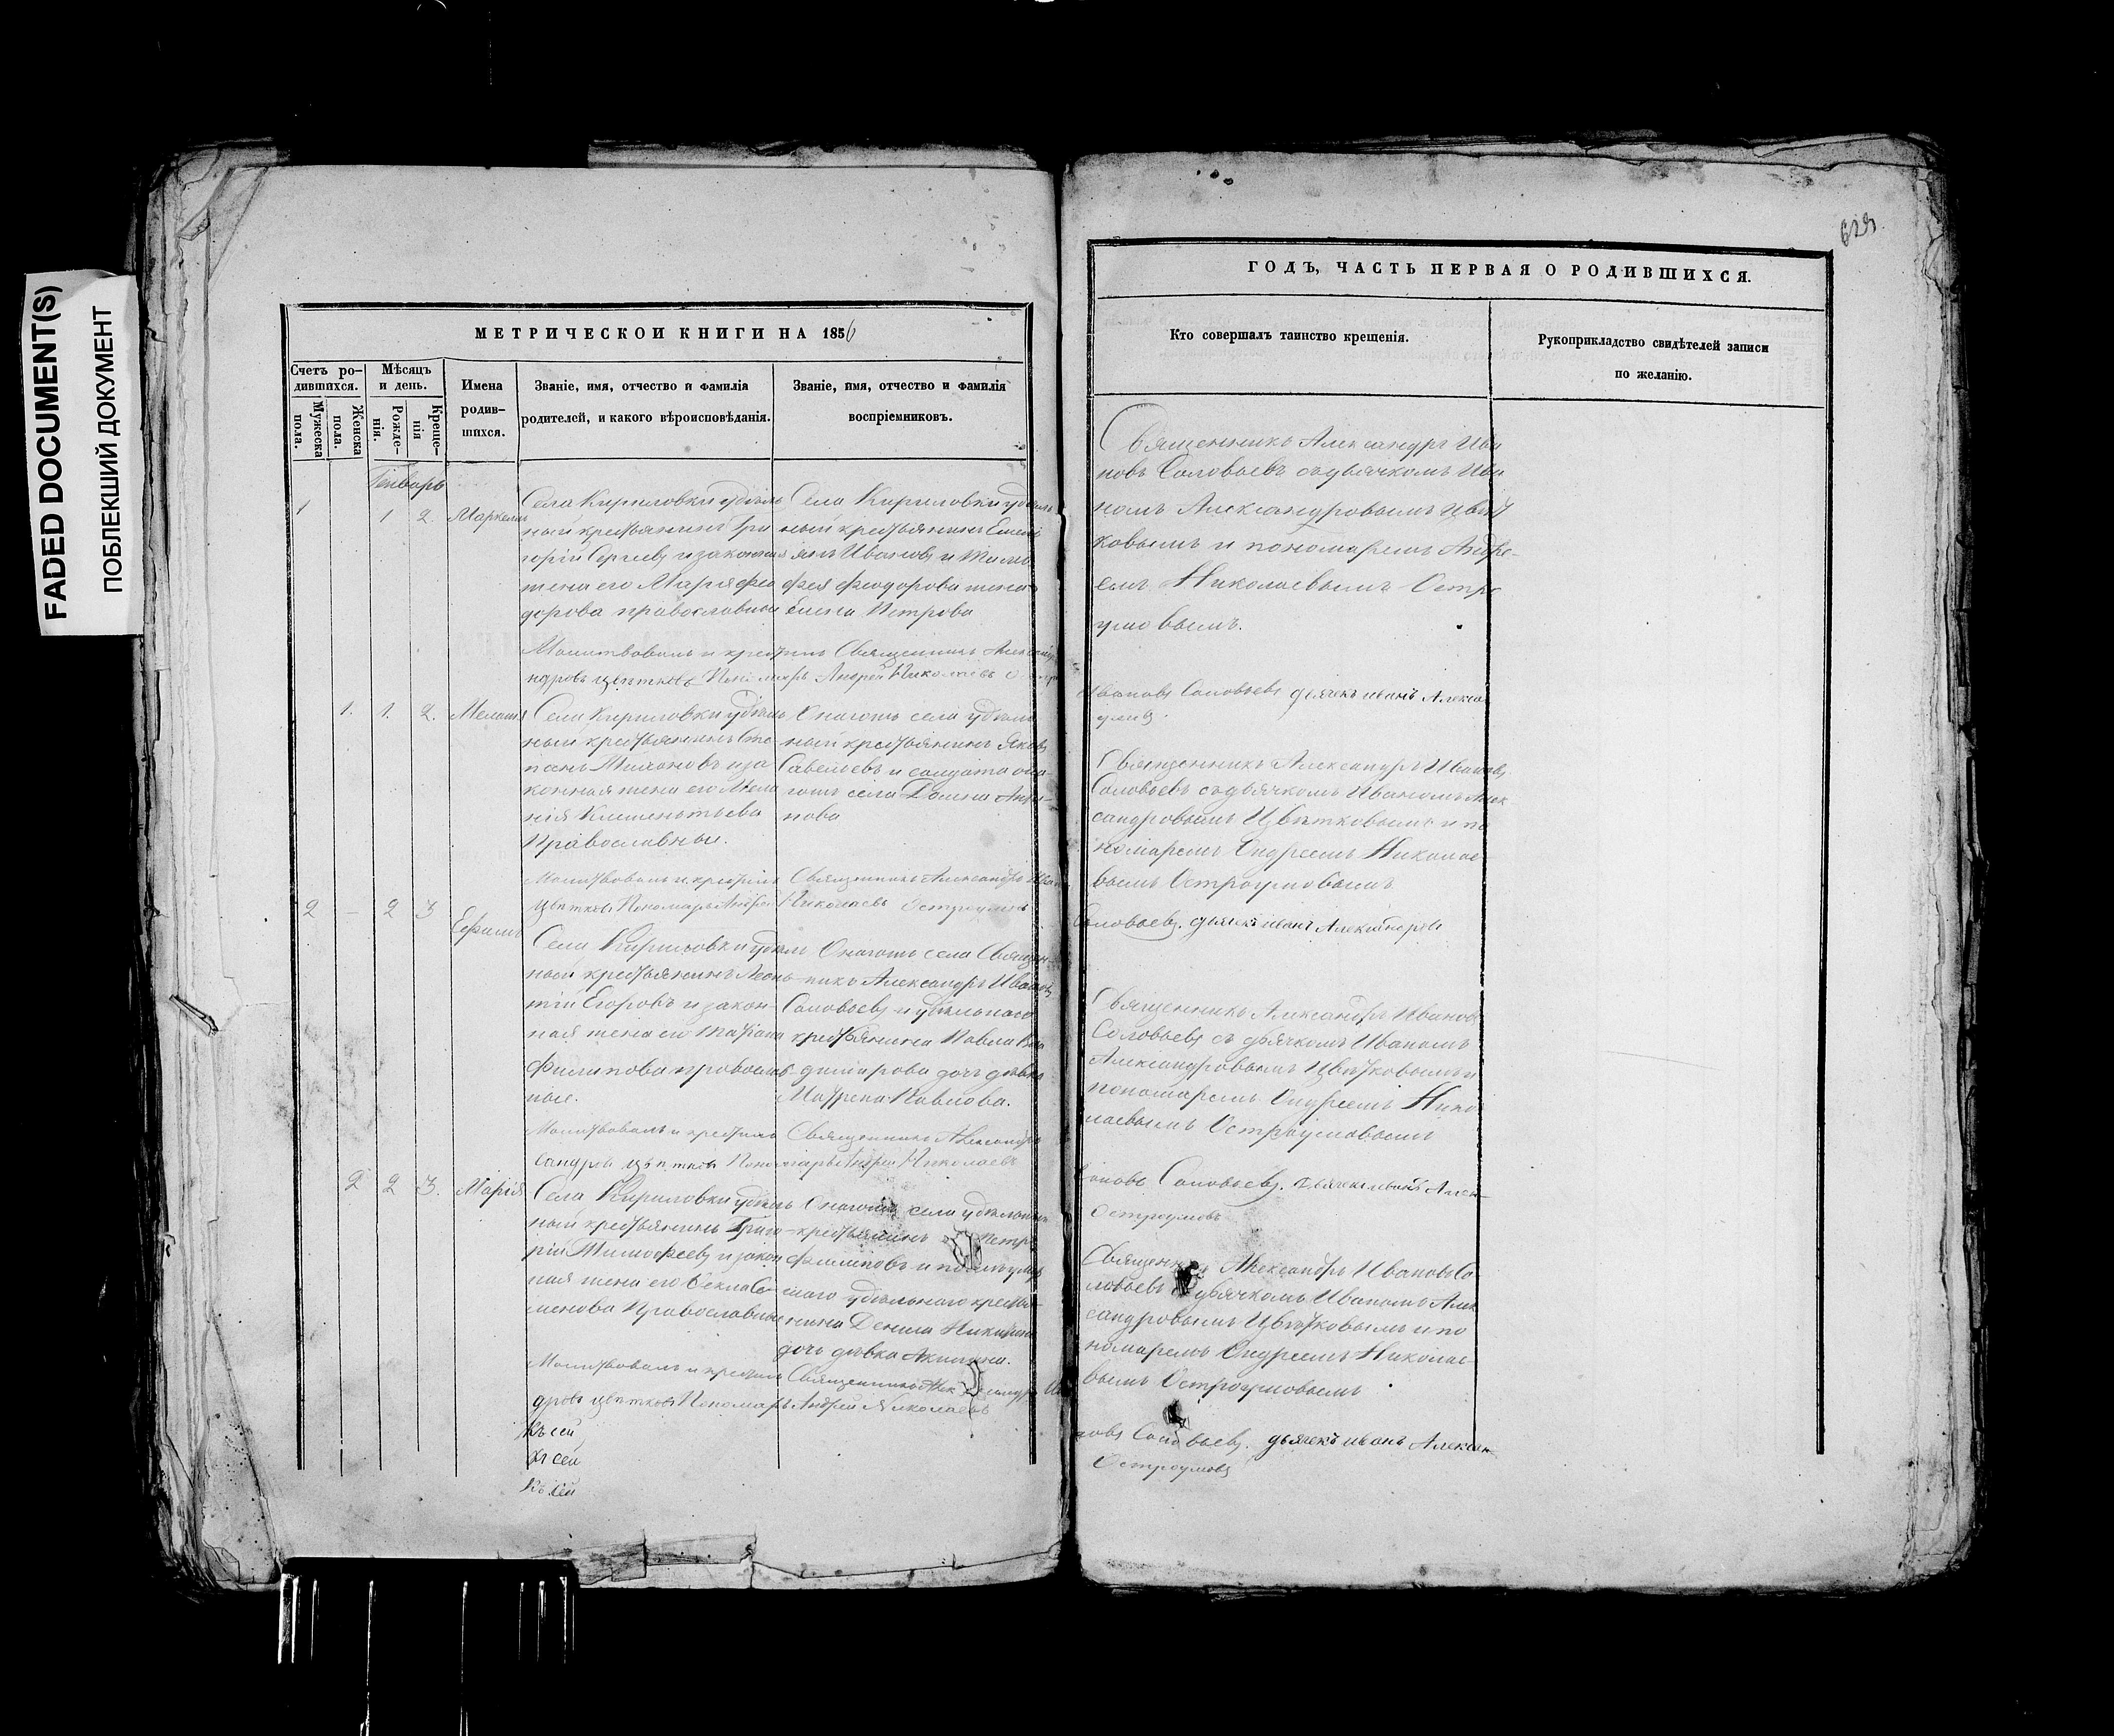 FADED DOCUMENT(S)
ПОБЛЕКШИЙ ДОКУМЕНТ
МЕТРИЧЕСКОЙ КНИГИ НА 1856
Счетъ ро-
дившихся.
Мужеска
пола.
Женска
пола.
Мѣсяцъ
и день.
Рожде-
нія.
Креще-
нія
Имена
родив-
шихся.
Званіе, имя, отчество и фамилія
родителей, и какого вѣроисповѣданія.
Званіе, имя, отчество и фамилія
воспріемниковъ.
Генварь
1 1 2 Маркелъ
Села Кириловки удѣль
ный крестьянинъ Гри
горій Сергеевъ и законная
жена его Марія Фео
дорова православныи
Села Кириловки удѣль
ный крестьянинъ Емель
янъ Ивановъ и Тимо
фея Феодорова жена
Елена Петрова
Молитвовалъ и крестилъ Священникъ Алексан
ндровъ Цвѣтковъ Пономарь Андрей Николаевъ
1. 1. 2. Меланія
Села Кириловки удѣль
ный крестьянинъ Сте
панъ Миконовъ и за
конная жена его Мела
нія Клементьева
Православныи.
Онагожъ села удѣль
ный крестьянинъ Яковъ
Савельевъ и солдатка она-
гожъ села Домна Анфи-
нова
Молитвовалъ и крестилъ Священникъ Александръ Иван
Цвѣтковъ Пономарь Андрей Николаевъ Остроумовъ
2 – 2 3 Ефимъ
Села Кириловки удѣль
ный крестьянинъ Леон-
тій Егоровъ и закон-
ная жена его Татіана
Филипова православ
ные.
Онагожъ села Священ-
никъ Александръ Ивановъ
Соловьевъ и удѣльнаго
крестьянина Павла Вла
димирова дочь дѣвка
Матрена Павлова.
Молитвовалъ и крестилъ Священникъ Александръ
сандровъ Цвѣтковъ Пономарь Андрей Николаевъ
2 2 3. Марія
Села Кириловки удѣль
ный крестьянинъ Григо-
рій Тимофеевъ и закон
ная жена его Фекла Се-
менова Православные
Онагожъ села удѣльный
крестьянинъ Петръ
Филиповъ и
скаго удѣльнаго кресть-
янина Данила Никитина
дочь дѣвка Акилина.
Молитвовалъ и крестилъ Священникъ Александръ Ив
дровъ Цвѣтковъ Пономарь Андрей Николаевъ
Къ сей
Къ сей
Къ сей
ГОДЪ, ЧАСТЬ ПЕРВАЯ О РОДИВШИХСЯ.
Кто совершалъ таинство крещенія.
Рукоприкладство свидѣтелей записи
по желанію.
Священникъ Александръ Ива
новъ Соловьевъ съ дьячкомъ Ива
номъ Александровымъ Цвѣт
ковымъ и пономаремъ Андре-
емъ Николаевымъ Остро
умовымъ.
Ивановъ Соловьевъ дьячекъ иванъ Алекса
умовъ.
Священникъ Александръ Ивановъ
Соловьевъ съ дьячкомъ Иваномъ Алек
сандровымъ Цвѣтковымъ и по
номаремъ Андреемъ Николае
вымъ Остроумовымъ
Соловьевъ. дьячекъ иванъ Александровъ
Священникъ Александръ Ивановъ
Соловьевъ съ дьячкомъ Иваномъ
Александровымъ Цвѣтковымъ и
пономаремъ Андреемъ Нико
лаевымъ Остроумовымъ
вановъ Соловьевъ. Дьячекъ иванъ Алек-
Остроумовъ
Священникъ Александръ Ивановъ Со
ловьевъ съ дьячкомъ Иваномъ Алек
сандровымъ Цвѣтковымъ и по
номаремъ Андреемъ Николае-
вымъ Остроумовымъ
новъ Соловьевъ. дьячекъ иванъ Алексан
Остроумовъ